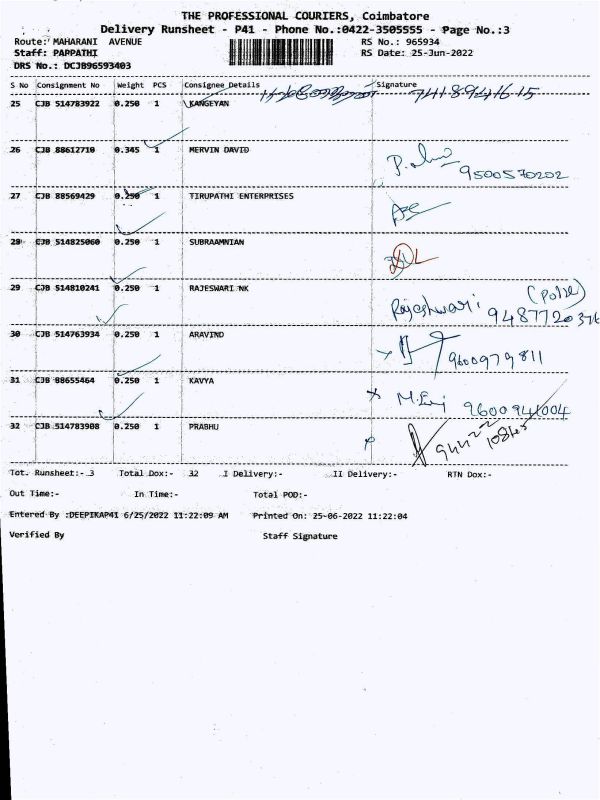 THE PROFESSIONAL COURIERS, Coimbatore
Delivery Runsheet - P41 - Phone No.:0422-3505555 - Page No.:3
Route: MAHARANI AVENUE RS No.: 965934
Staff: PAPPATHI RS Date: 25-Jun-2022
DRS No.: DCJB96593403
S No Consignment No Weight PCS Consignee Details Signature
25 CJB 514783922 0.250 1 KANGEYAN
26 CJB 88612710 0.345 1 MERVIN DAVID
9500570202
27 CJB 88569429 0.250 1 TIRUPATHI ENTERPRISES
28 CJB 514825060 0.250 1 SUBRAAMNIAN
29 CJB 514810241 0.250 1 RAJESWARI NK
Rajeshwari
30 CJB 514763934 0.250 1 ARAVIND
9600979811
31 CJB 88655464 0.250 1 KAVYA
9600941004
32 CJB 514783908 0.250 1 PRABHU
Tot. Runsheet:- 3 Total Dox:- 32 I Delivery:- II Delivery:- RTN Dox:-
Out Time:- In Time:- Total POD:-
Entered By :DEEPIKAP41 6/25/2022 11:22:09 AM Printed On: 25-06-2022 11:22:04
Verified By Staff Signature